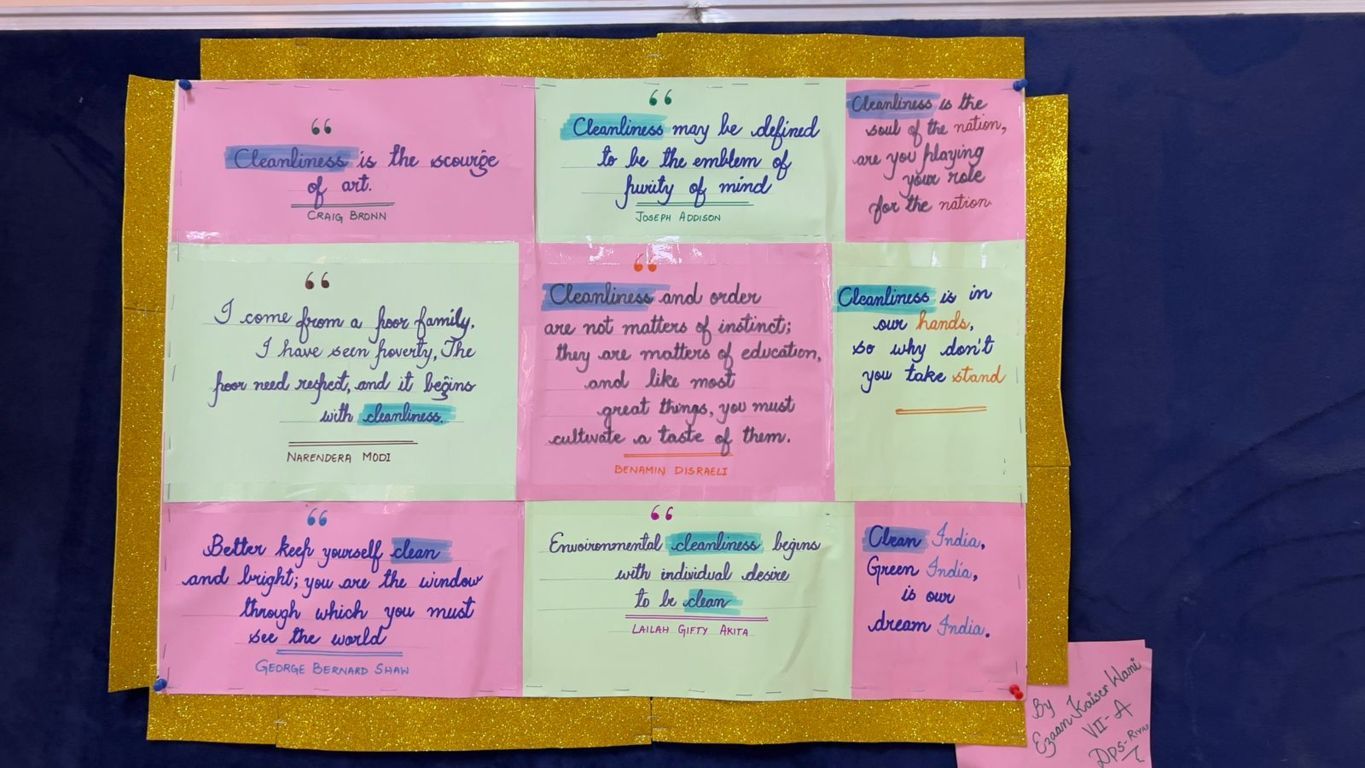 “
Cleanliness is the scourge
of art.
CRAIG BRONN
“
Cleanliness may be defined
to be the emblem of
purity of mind
JOSEPH ADDISON
Cleanliness is the
soul of the nation,
are you playing
your role
for the nation.
“
I come from a poor family,
I have seen poverty, The
poor need respect, and it begins
with cleanliness.
NARENDERA MODI
“
Cleanliness and order
are not matters of instinct;
they are matters of education,
and like most
great things, you must
cultivate a taste of them.
BENAMIN DISRAELI
Cleanliness is in
our hands,
so why don't
you take stand
“
Better keep yourself clean
and bright; you are the window
through which you must
see the world
GEORGE BERNARD SHAW
“
Environmental cleanliness begins
with individual desire
to be clean
LAILAH GIFTY AKITA
Clean India,
Green India,
is our
dream India.
By
Ezaan Kaiser Wani
VII-A
DPS-